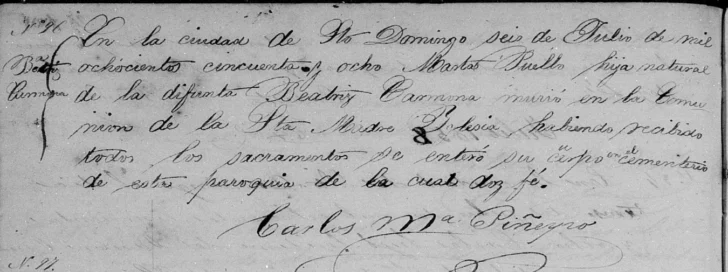 Nº 96.
En la ciudad de Sto Domingo seis de Julio de mil
ochocientos cincuenta y ocho Martos Puello hija natural
de la difunta Beatriz Carmona murió en la comu
nion de la Sta Madre Iglesia habiendo recibido
todos los sacramentos se enteró su cuerpo en el cementerio
de esta paroquia de la cual doy fé.
Carlos Mª Piñeyro
Nº 97.